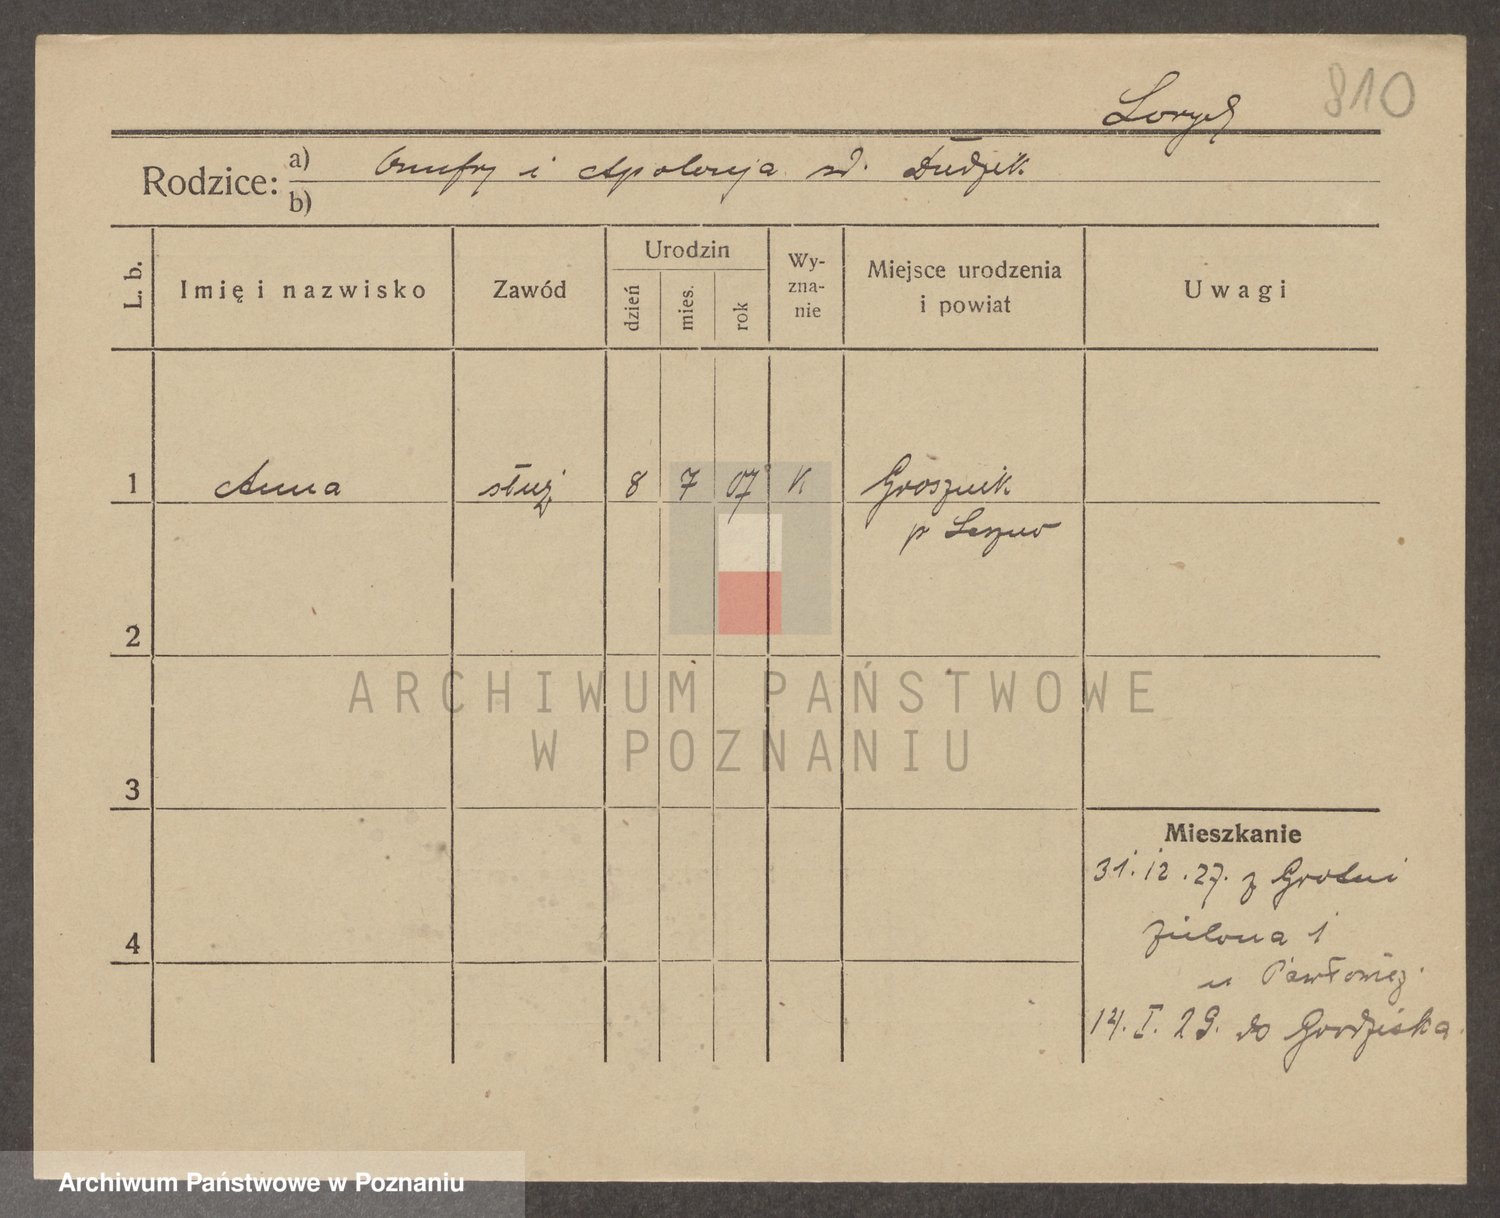 810
Loryś
Rodzice: a) Onufry i Apolonja zd. Dudzik
b)
L. b. Imię i nazwisko Zawód Urodzin dzień mies. rok Wy-zna-nie Miejsce urodzenia i powiat Uwagi
1 Anna służ 8 7 07 K Grosznik
p Leszno
2
ARCHIWUM PAŃSTWOWE
W POZNANIU
3
Mieszkanie
31.12.27. z
4
Zielona 1
u
14.I.29. do Grodziska.
Archiwum Państwowe w Poznaniu